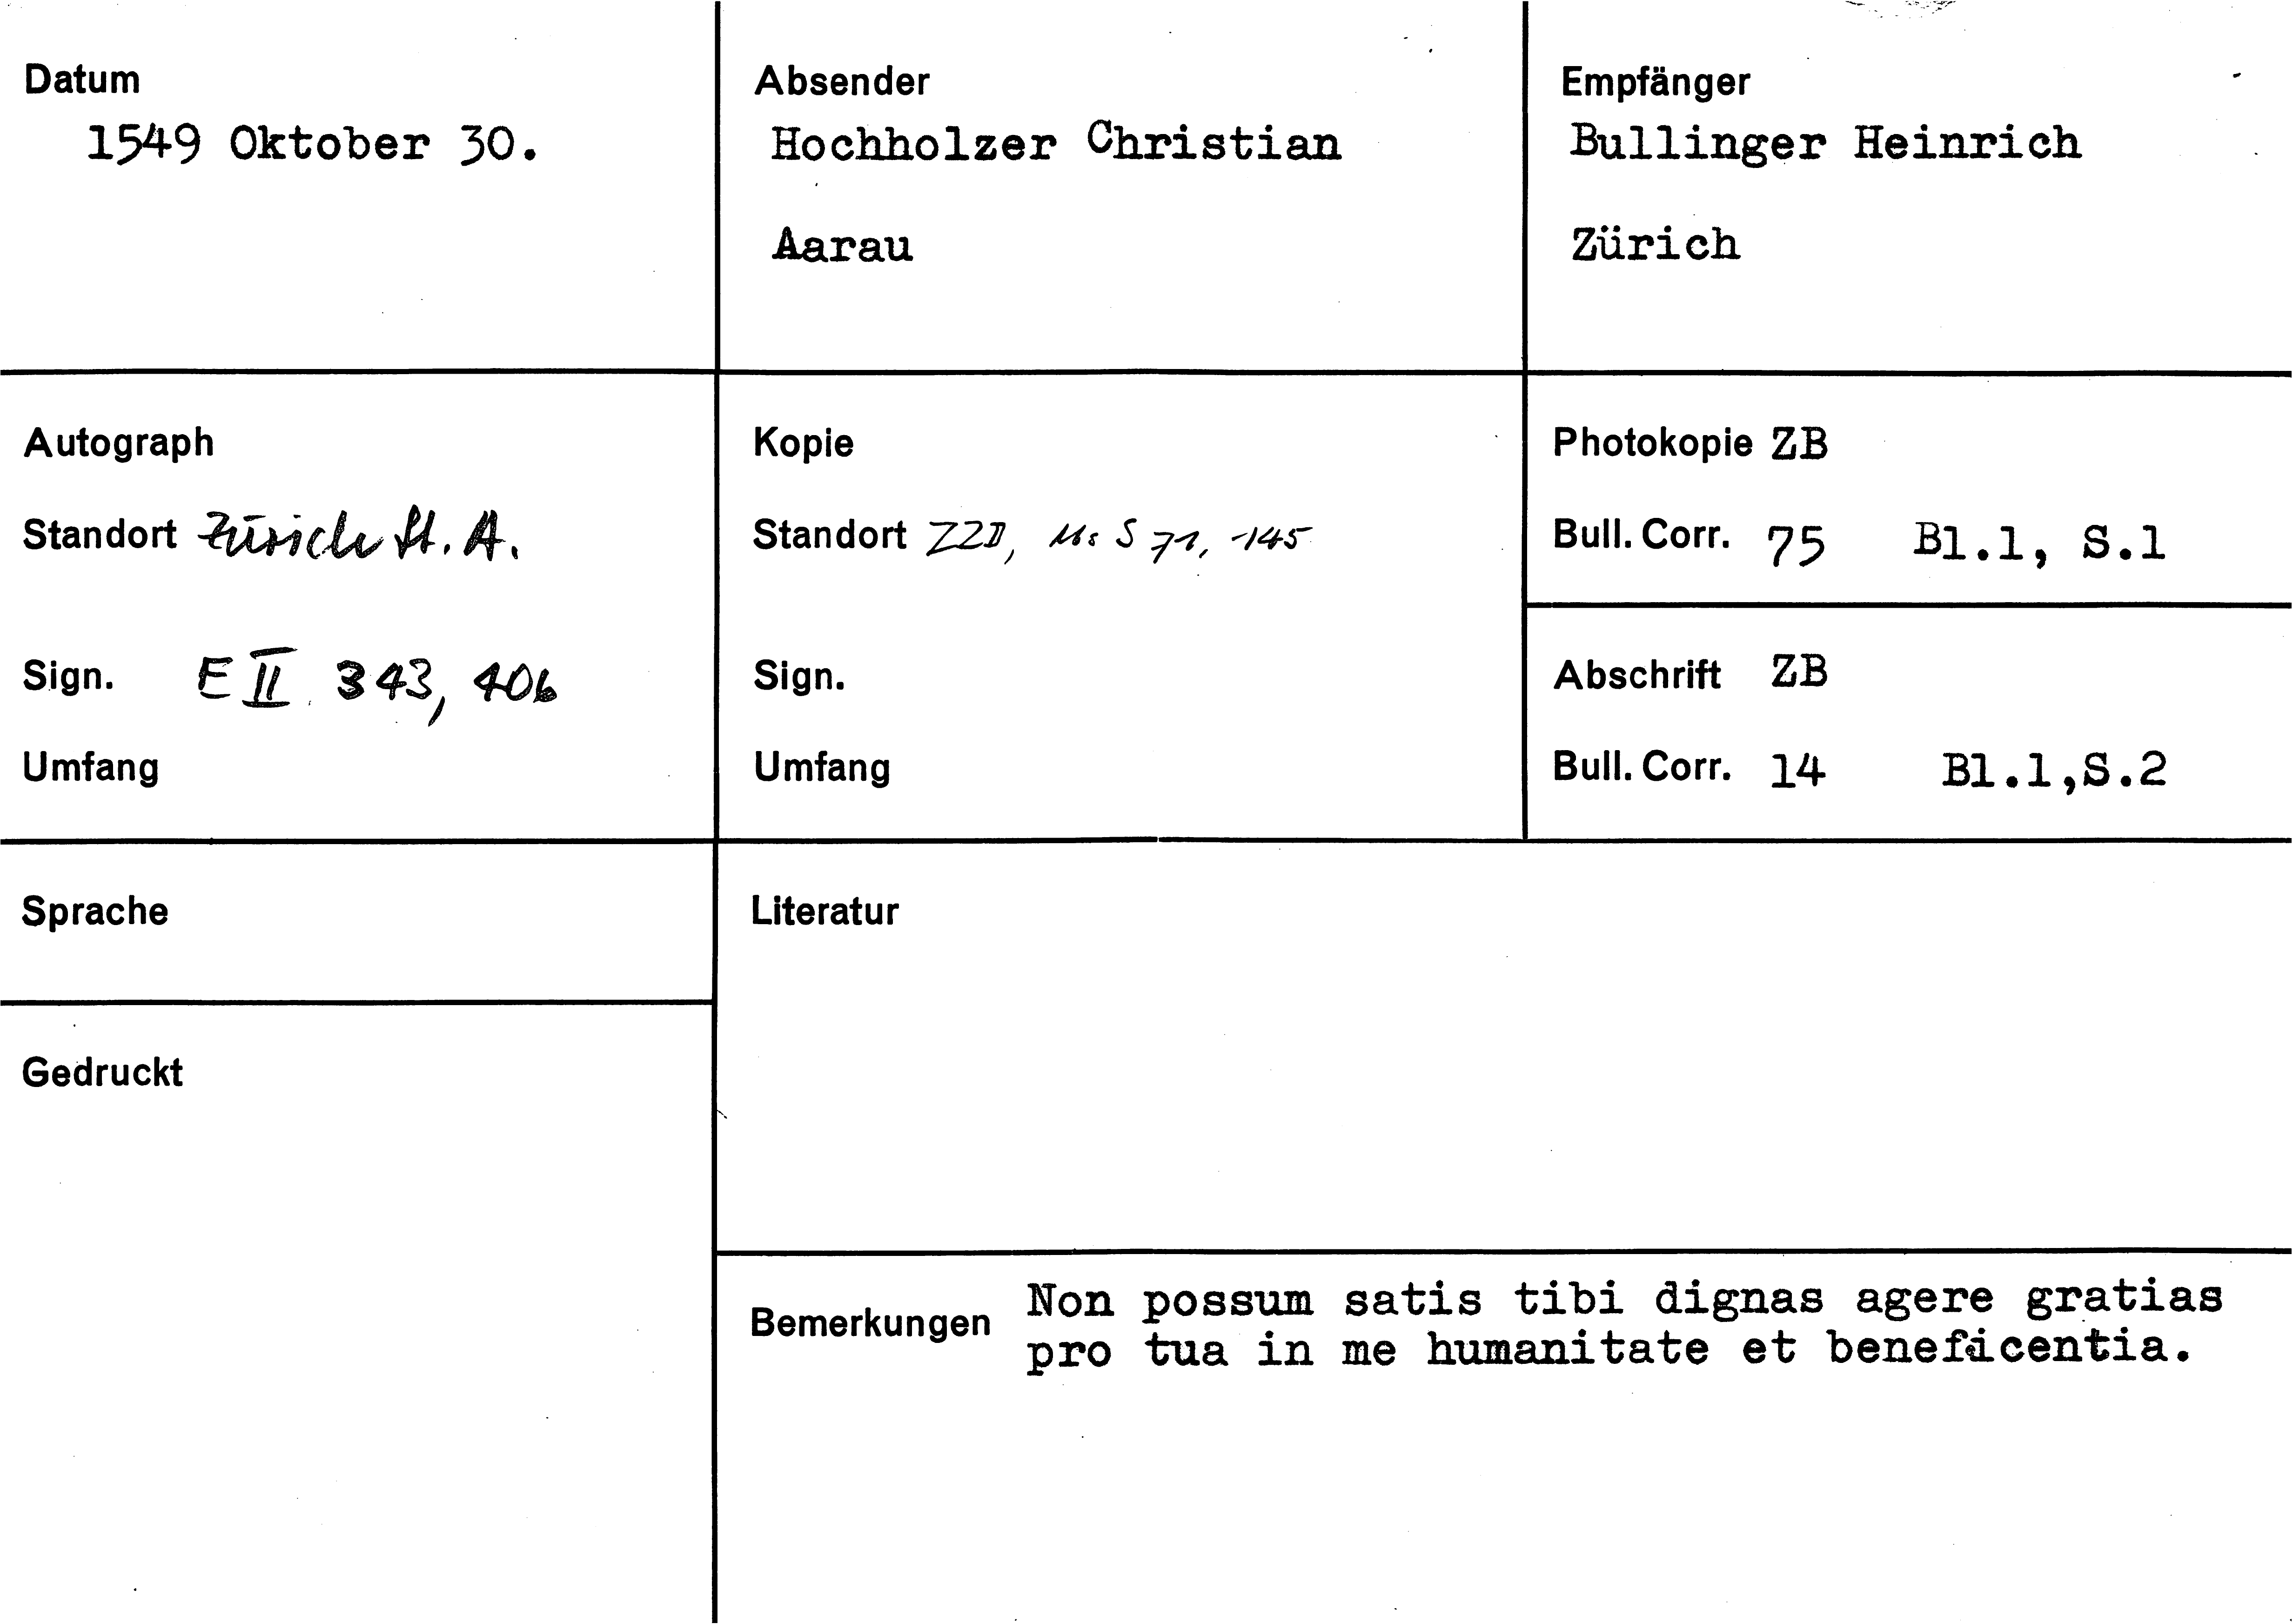 Datum
1549 Oktober 30.
Absender
Hochholzer Christian
Aarau
Empfänger
Bullinger Heinrich
Zürich
Autograph
Standort Zürich St. A.
Sign. E II 343, 406
Umfang
Kopie
Standort ZZB, Ms S 71, 145
Sign.
Umfang
Photokopie ZB
Bull. Corr. 75 Bl.1, S.1
Abschrift ZB
Bull. Corr. 14 Bl.1,S.2
Sprache
Gedruckt
Literatur
Bemerkungen Non possum satis tibi dignas agere gratias
pro tua in me humanitate et beneficentia.